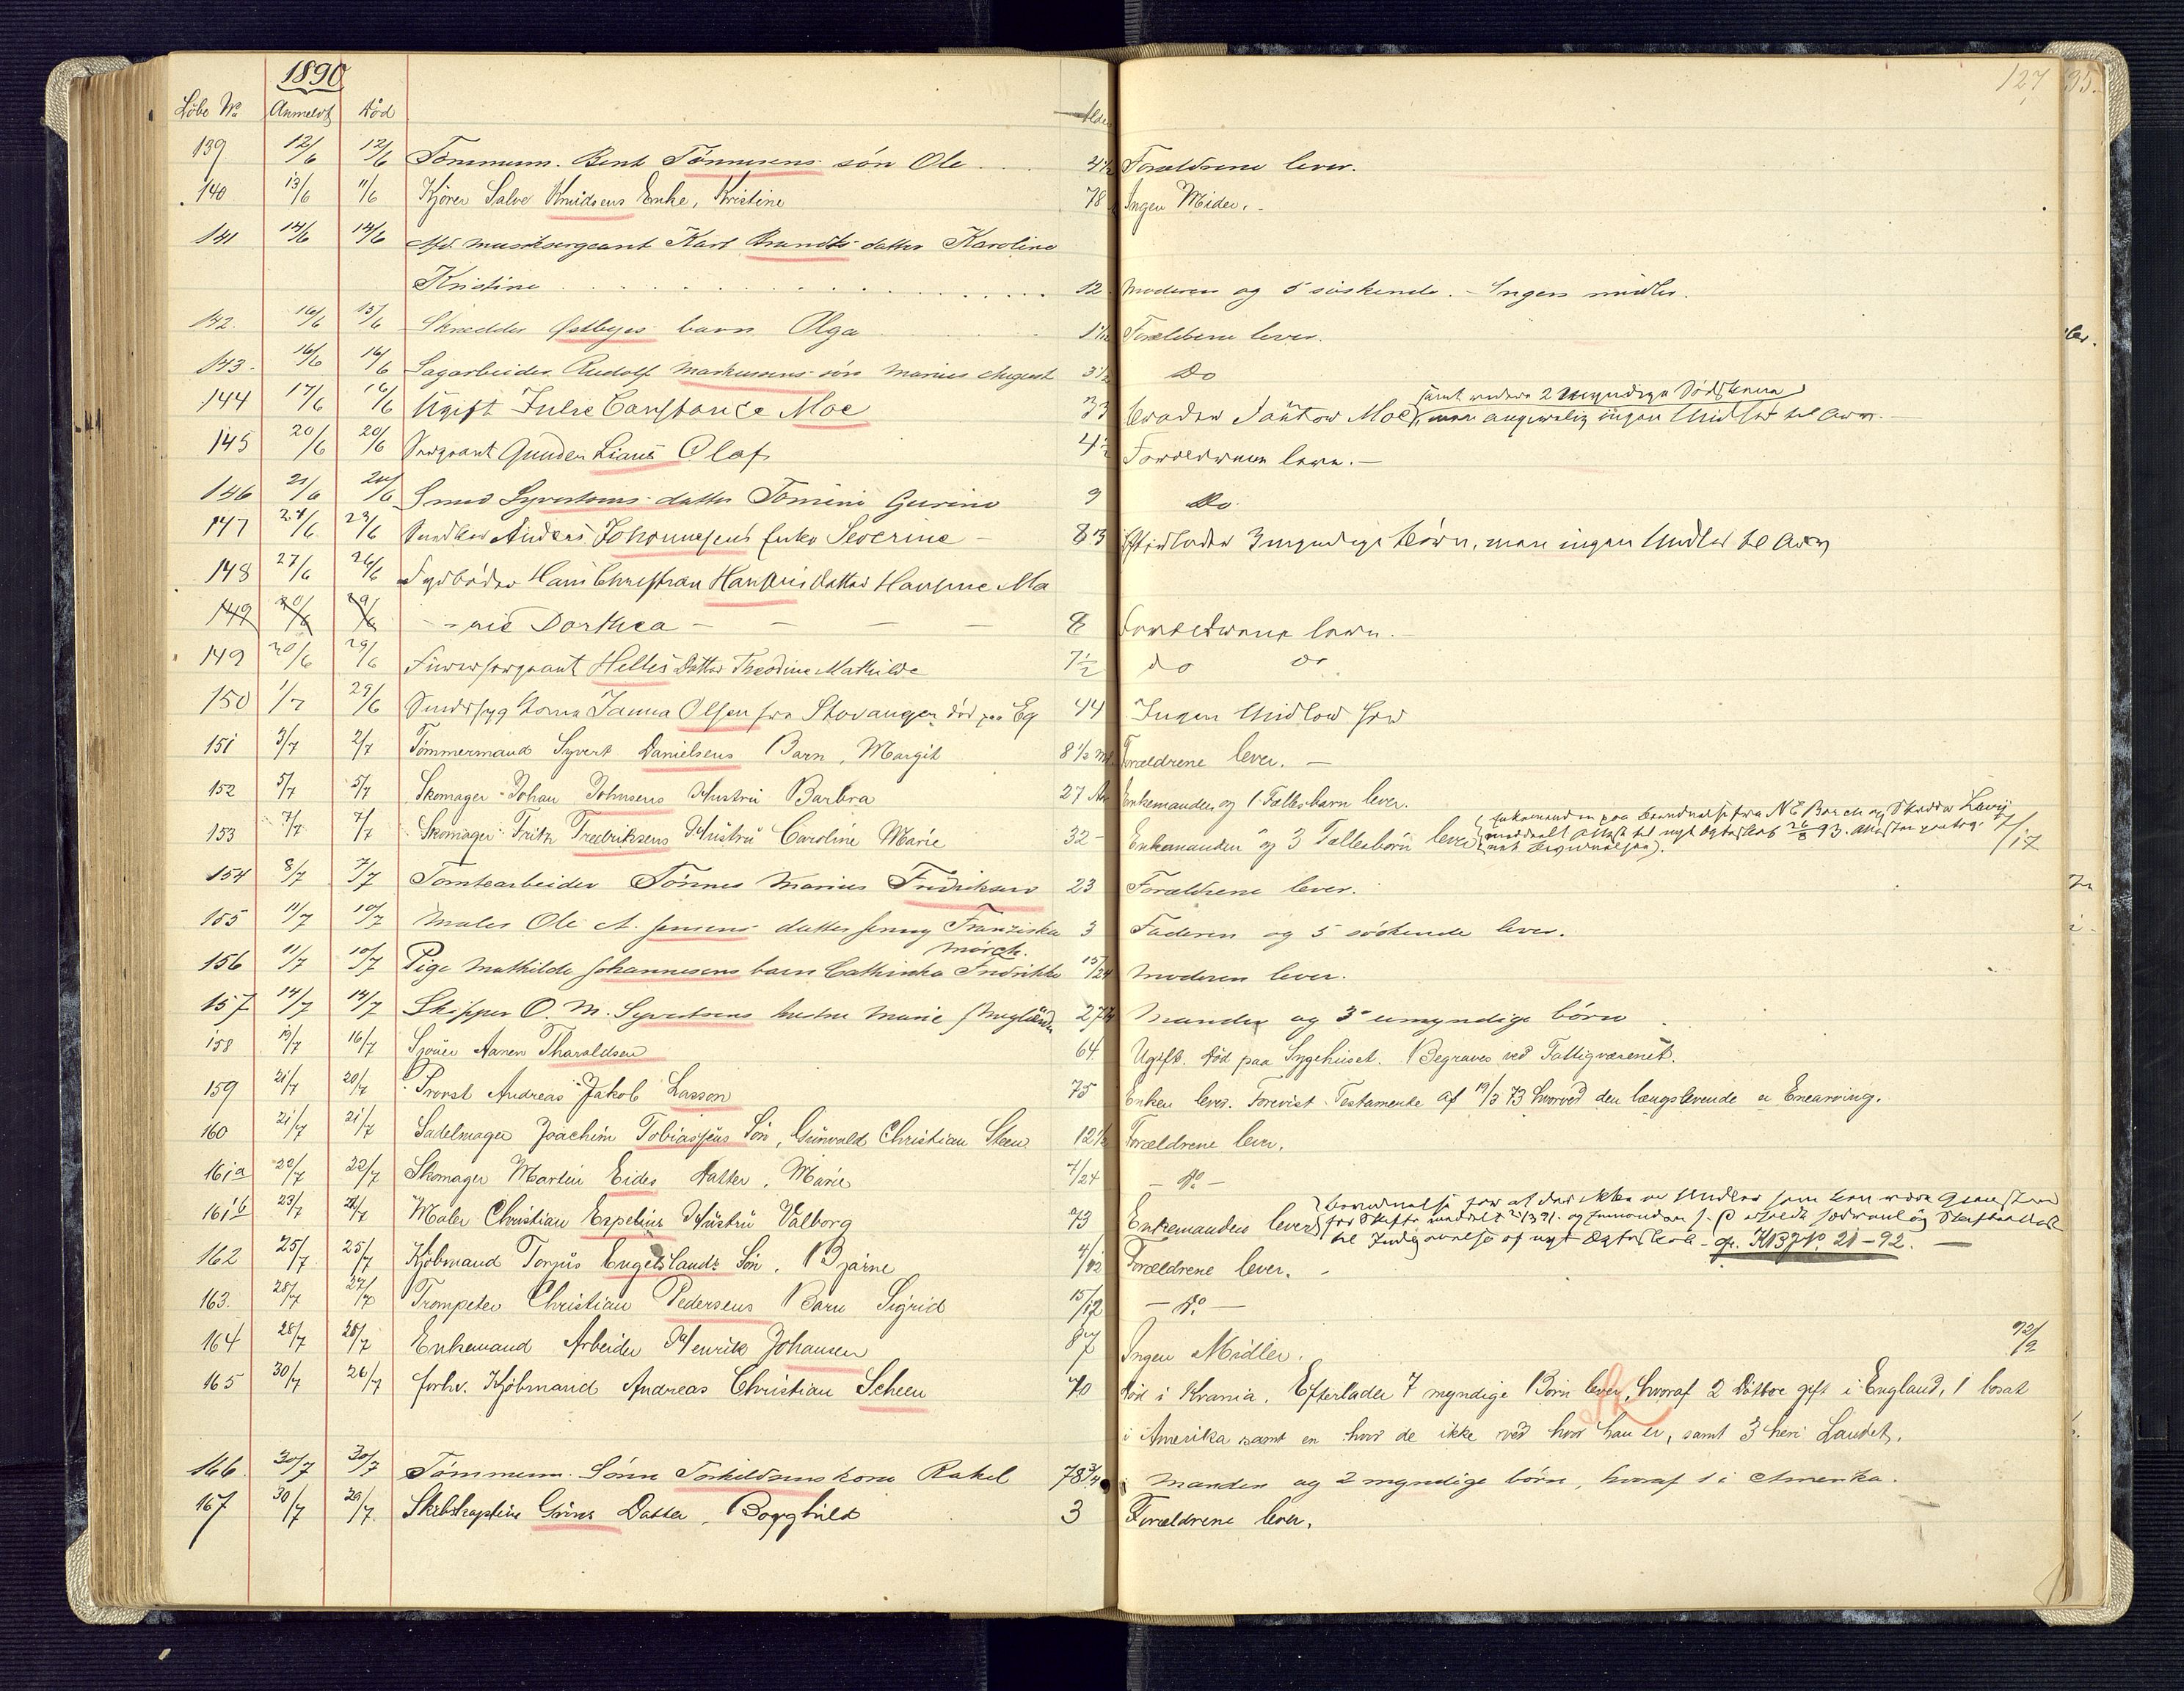 127
1890
Löbe No Anmeldt Död Alder
139 12/6 12/6 Tömmerm. Bent Tönnesens sön Ole 4 1/2 Forældrene lever.
140 13/6 11/6 Kjörer Salve Knudsens Enke, Kristine 78 Ingen Midler.
141 14/6 14/6 Afd. musiksergeant Karl Brandts datter Karoline
Kristine 12 Moderen og 5 söskende. - Ingen midler.
142. 16/6 15/6 Skrædder Østbyes barn Olga Forældrene lever.
143. 16/6 16/6 Sagarbeider Rudolf Markussens sön Marius August 3 1/2 Do
samt endnu 2 umyndige Södskende
144 17/6 16/6 Ugift Julie Constance Moe 33 Broder Moe men angivelig ingen Midler til Arv.
145 20/6 20/6 Sergeant Gunder Lians Olaf 4 1/2 Forældrene lever. -
146 21/6 20/6 Smed Syvertsens datter Tomine Gurine 9 Do.
147 24/6 23/6 Anders Johannesens Enke Severine - 83 Efterlader 3 myndige Börn, men ingen Midler til Arv
148 27/6 26/6 Hans Christian Hansens Datter Hansine Ma
149 30/6 29/6 - rie Dorthea - - - - 8 Forældrene lever.
149 30/6 29/6 Furersergeant Helles Datter Theodine Mathilde 7 1/2 do do
150 1/7 29/6 Sindssyg Kone Janna Olsen fra Stavanger död paa Eg 44 Ingen Midler her
151 3/7 2/7 Tömmermand Syvert Danielsens Barn, Margit 8 1/2 Md. Forældrene lever. -
152 5/7 5/7 Skomager Johan Johnsens Hustru Barbra 27 Aar Enkemanden og 1 Fællesbarn lever.
153 7/7 7/7 Skomager Fritz Fredriksens Hustru Caroline Marie 32 - Enkemanden og 3 Fællesbörn lever
Enkemanden paa
meddelt Attest til nyt Ægteskab 26/8 93.
154 8/7 7/7 Tomtearbeider Tönnes Marius Fredriksen 23 Forældrene lever.
155 11/7 10/7 Maler Ole A. Jensens datter Jenny Franziska 3 Faderen og 5 söskende lever.
Mörch.
156 11/7 10/7 Pige Mathilde Johannesens barn Cathinka Fredrikke 15/24 Moderen lever.
157 14/7 14/7 Skipper O. M. Syvertsens hustru Marie 27 Manden og 3 umyndige börn
158 19/7 16/7 Sjouer Aanen Tharaldsen 64 Ugift. Död paa Sygehuset. Begraves ved Fattigvæsenet.
159 21/7 20/7 Provst Andreas Jakob Lasson 75 Enken lever. Forevist Testamente af 19/3 73 hvorved den længstlevende er Enearving.
160 21/7 21/7 Sadelmager Joachim Tobiassens Sön, Gunvald Christian Steen 12 1/2 Forældrene lever.
161a 22/7 22/7 Skomager Martin Eides Datter, Marie 7/24 - Do -
161b 23/7 Maler Christian Espelins Hustru Valborg 73 Enkemanden lever
for Skifte meddelt
til Indgaaelse af nyt Ægteskab - No. 21-92. -
162 25/7 25/7 Kjöbmand Torjus Engelslands Sön, Bjarne 4/12 Forældrene lever. -
163. 28/7 27/7 Trompeter Christian Pedersens Barn Sigrid 15/12 - Do -
164 28/7 28/7 Enkemand Arbeider Henrik Johansen 87 Ingen Midler.
165 30/7 26/7 forhv. Kjöbmand Andreas Christian Scheen 70 Död i Krania. Efterlader 7 myndige Börn lever, hvoraf 2 Döttre gift i England, 1 bosat
i Amerika samt en hvor de ikke ved hvor han er, samt 3 her i Landet.
166 30/7 30/7 Tömmerm. Sönne Torkildsens kone Rakel 78 3/4 Manden og 2 myndige börn, hvoraf 1 i Amerika.
167 30/7 29/7 Skibskaptein Grims Datter, Borghild 3 Forældrene lever.